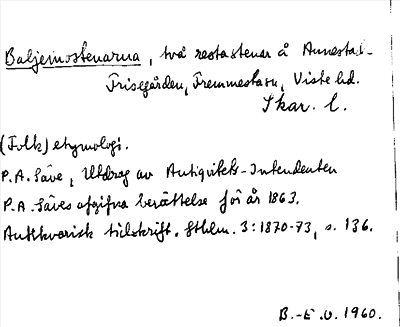 Baljeinostenarna, två resta stenar å Annestad-
Frisegården, Fremmestads sn, Viste hd.
Skar. l.
(Folk)etymologi.
P.A. Säve, Utdrag av Antiqvitets-Intendenten
P.A. Säves afgifna berättelse för år 1863.
Antikvarisk tidskrift. Sthlm. 3:1870-73, s. 136.
B.-E.O. 1960.